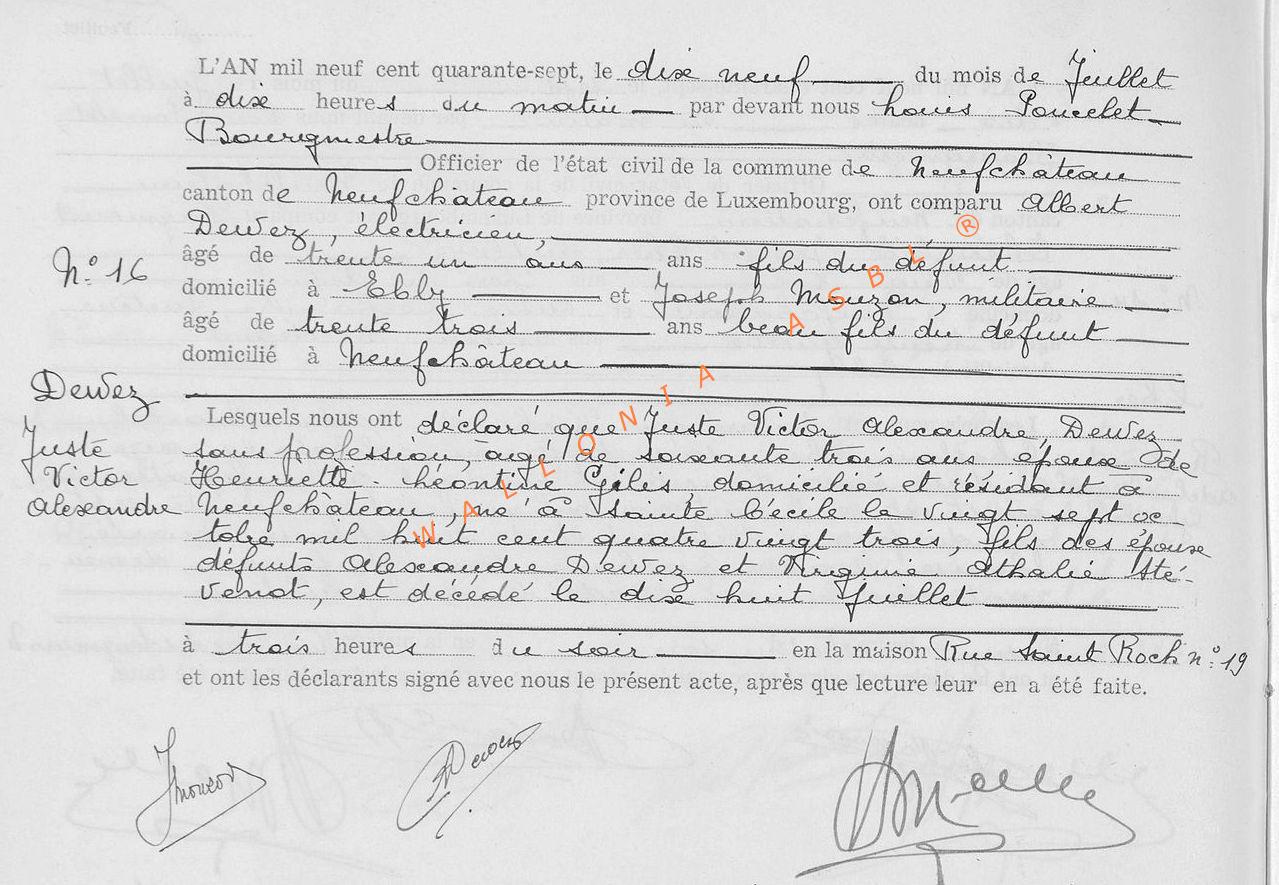 L'AN mil neuf cent quarante-sept, le dix neuf du mois de Juillet
à dix heures du matin par devant nous Louis Poncelet
Bourgmestre
Officier de l'état civil de la commune de Neufchâteau
canton de Neufchâteau province de Luxembourg, ont comparu Albert
Dewez, électricien,
N° 16
âgé de trente un ans ans fils du défunt
domicilié à Ebly et Joseph Mouzon, militaire
âgé de trente trois ans beau fils du défunt
domicilié à Neufchâteau
Dewez
Juste
Victor
Alexandre
Lesquels nous ont déclaré que Juste Victor Alexandre, Dewez
sans profession, âgé de soixante trois ans époux de
Henriette-Léontine Gilis, domicilié et résidant à
Neufchâteau, né à Sainte Cécile le vingt sept oc
tobre mil huit cent quatre vingt trois, fils des époux
défunts Alexandre Dewez et Virginie Athalie Sté-
venot, est décédé le dix huit Juillet
à trois heures du soir en la maison Rue Saint Roch n° 19
et ont les déclarants signé avec nous le présent acte, après que lecture leur en a été faite.
WALLONIA ASBL ®
JMouzon Dewez